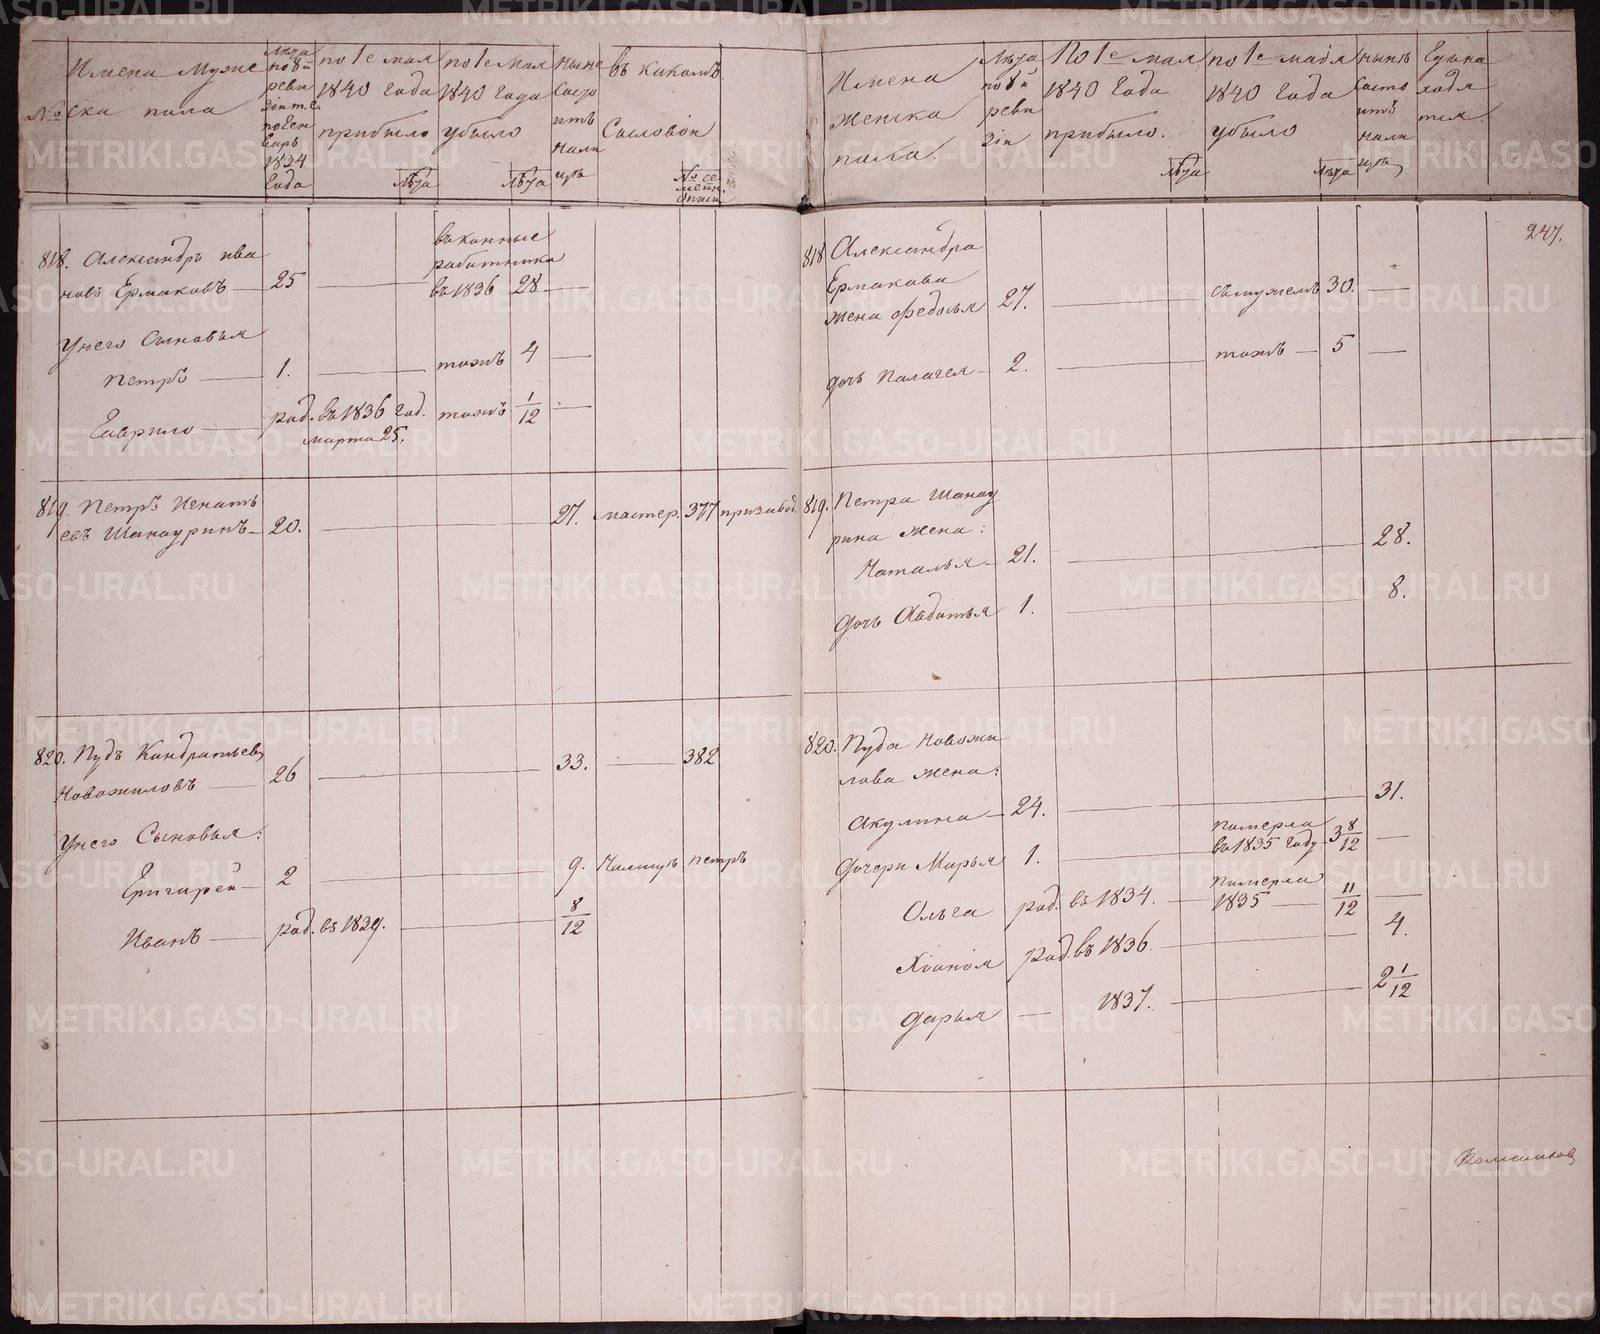 №
Имена Муже
ска пола
лѣта
по 8й
реви
зіи т.е.
по Ген
варь
1834
Года
по 1е мая
1840 Года
прибыло
лѣта
по 1е Мая
1840 Года
убыло
лѣта
ныне
Состо
итъ
нали
цѣ
въ какомъ
Сословіи
№ се
мейн.
описи
818. Александръ ива
новъ Ермаковъ — 25
въ конные
работники
въ 1836 28 —
У него Сыновья
Петръ — 1. — тожъ 4 —
Гаврило — род. въ 1836 год. тожъ 1/12 —
марта 25.
819. Петръ Игнать
евъ Шанауринъ — 20. — 27. мастер. 377 при завод.
820. Пудъ Кандратьев
Новожиловъ — 26 — 33. — 382
У него Сыновья:
Григорей — 2 — 9. Налицѣ Петръ
Иванъ — род. въ 1839. — 8/12
Имена
Женска
пола.
Лѣта
по 8й
реви
зіи
По 1е мая
1840 Года
прибыло.
лѣта
по 1е майя
1840 Года
убыло
лѣта
нынѣ
Состо
итъ
нали
цѣ
Гдѣ на
ходя
тся.
247.
818 Александра
Ермакова
жена Федосья 27. — съ мужемъ 30. —
дочь Палагея — 2. — тожъ — 5 —
819. Петра Шанау
рина жена:
Наталья — 21. — 28.
дочь Авдотья 1. — 8.
820. Пуда Новожи
лова жена:
Акулина — 24. — 31.
дочери Марья 1. — померла
въ 1835 году 3 8/12 —
Ольга род. въ 1834. — померла
1835 — 11/12 —
Хіонія род. въ 1836. — 4.
дарья — 1837. — 2 1/12
METRIKI.GASO-URAL.RU